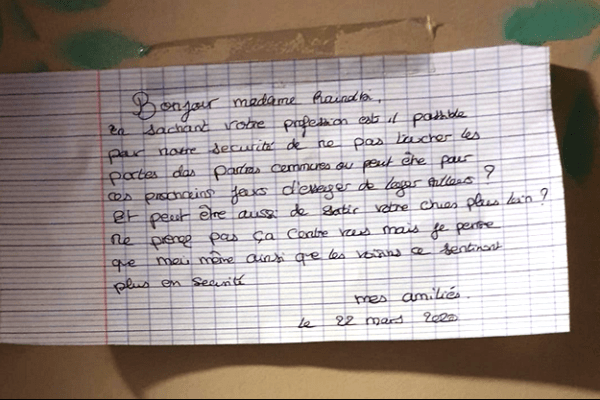 Bonjour madame
En sachant votre profession est il possible
par notre securité de ne pas toucher les
portes des Portes communes ou peut être pour
ces prochains jours d'essayer de loger ailleurs ?
Et peut être aussi de sortir votre chien plus loin ?
Ne prenez pas ça contre vous mais je pense
que moi même ainsi que les voisins ce sentiront
plus en securité
mes amitiés.
le 22 mars 2020